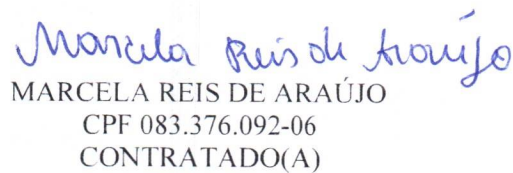 Marcela Reis de Araújo
MARCELA REIS DE ARAÚJO
CPF 083.376.092-06
CONTRATADO(A)